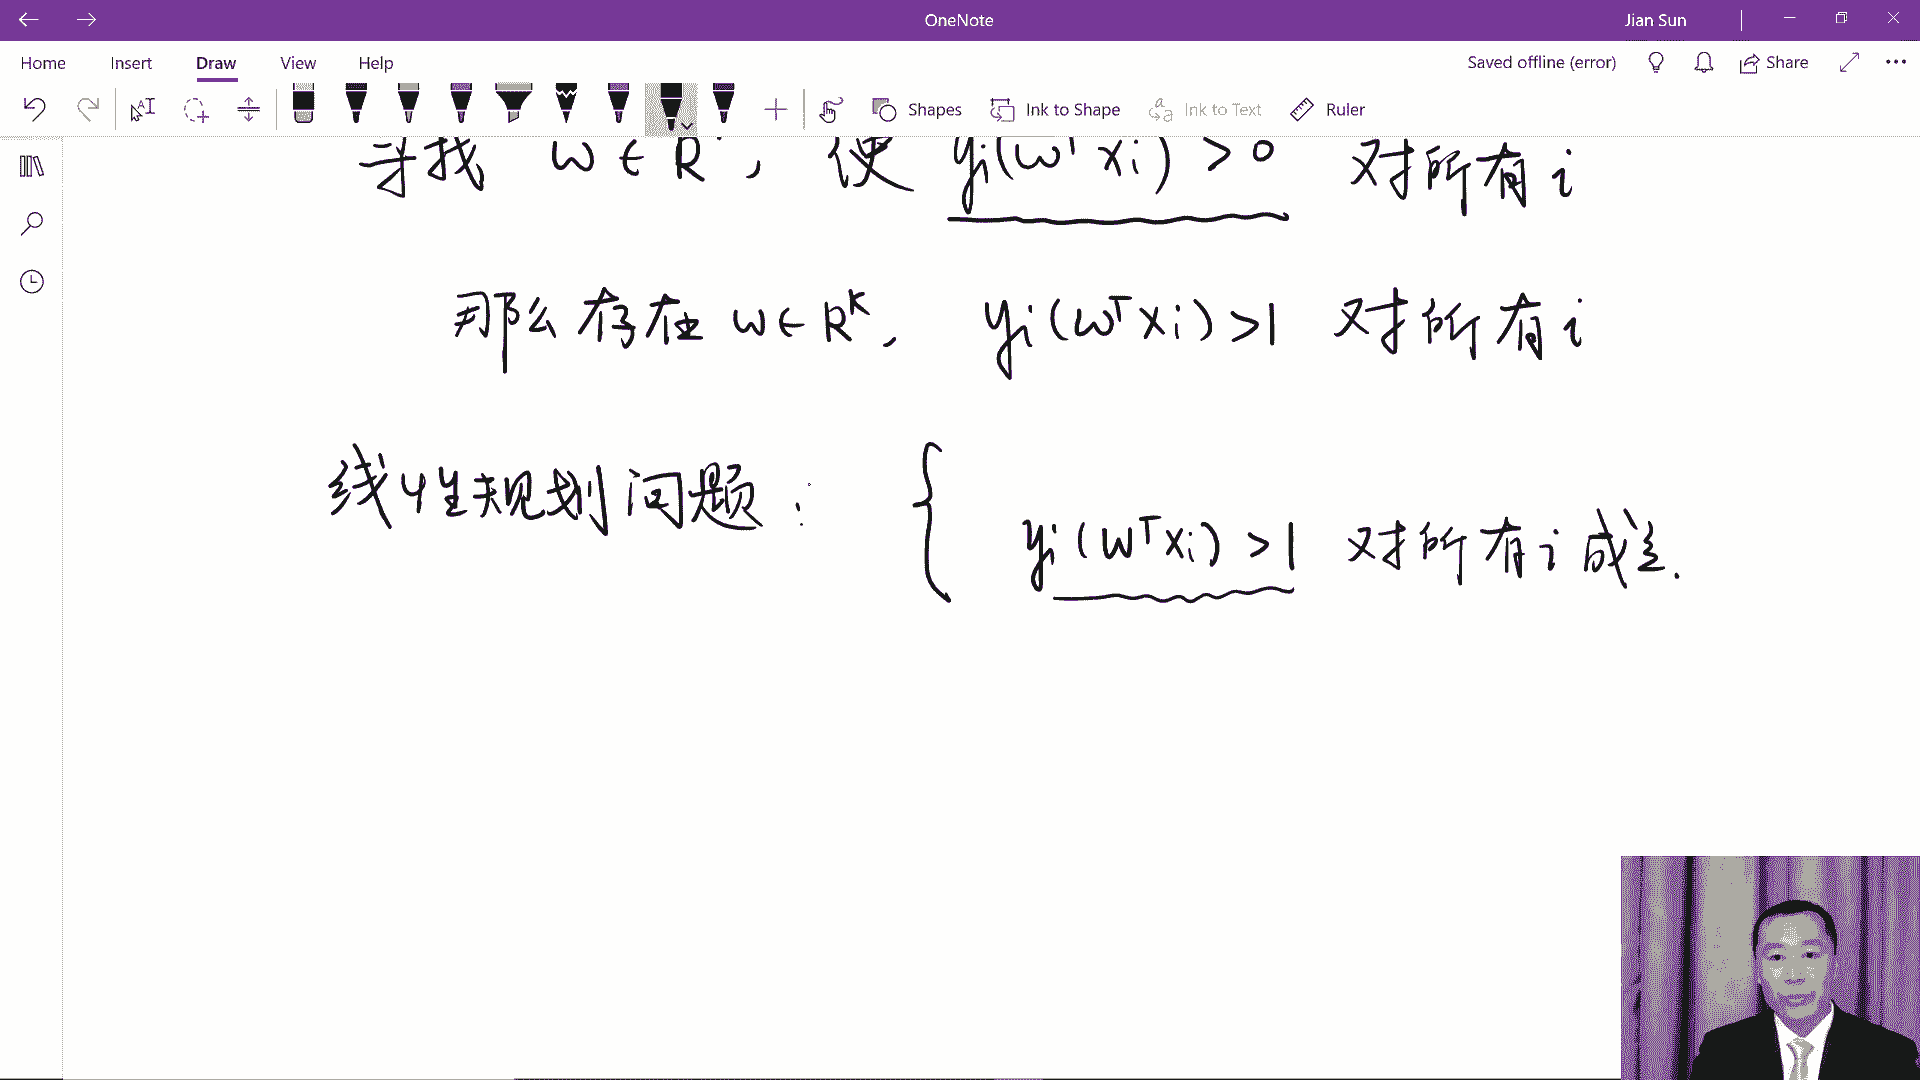 OneNote
Jian Sun
Home Insert Draw View Help
Saved offline (error) Share
Shapes Ink to Shape Ink to Text Ruler
寻找 w ∈ R , 使 yi(wᵀxi) > 0 对所有 i
那么存在 w ∈ Rᴷ, yi(wᵀxi) > 1 对所有 i
线性规划问题: {
yi(wᵀxi) > 1 对所有 i 成立.